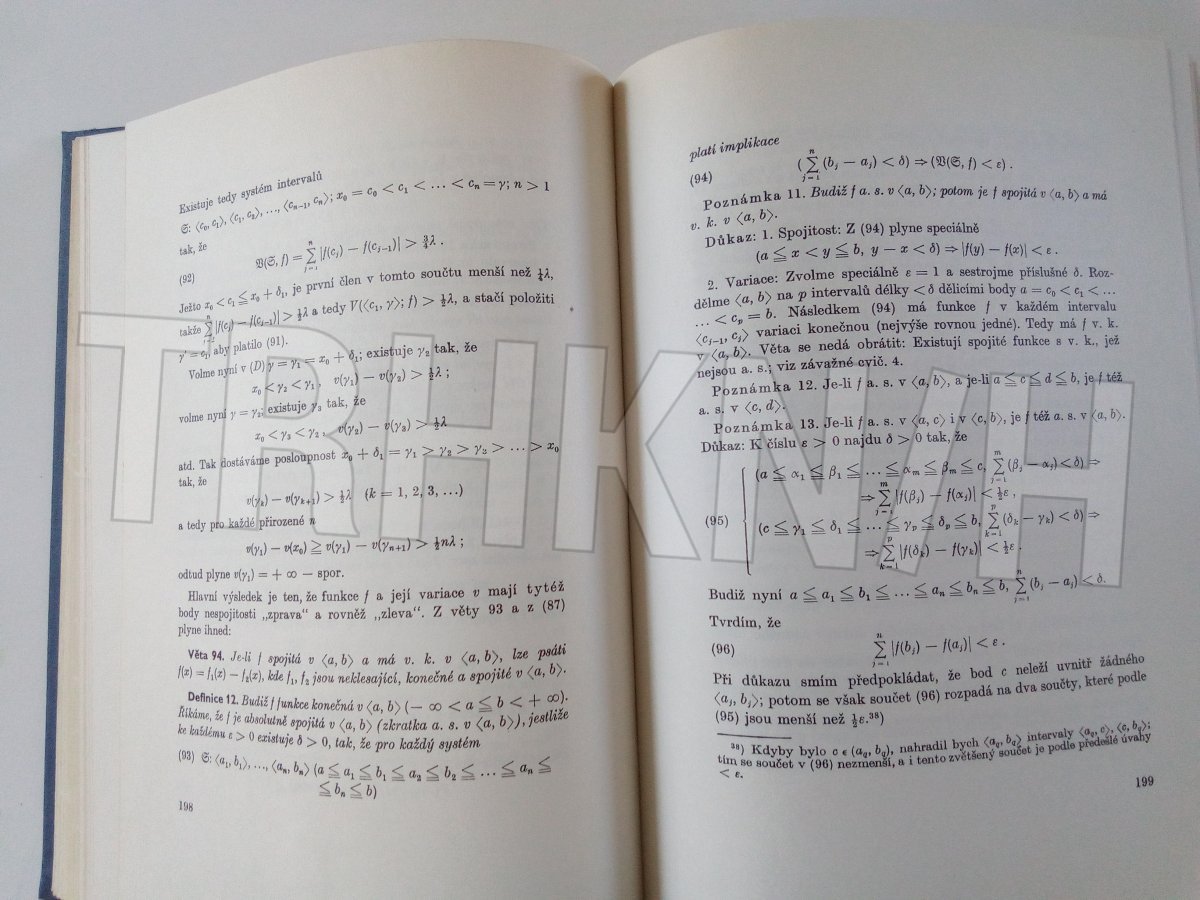 Existuje tedy systém intervalů
𝔖: ⟨c₀, c₁⟩, ⟨c₁, c₂⟩, …, ⟨cₙ₋₁, cₙ⟩; x₀ = c₀ < c₁ < … < cₙ = γ; n > 1
tak, že
(92) 𝔙(𝔖, f) = ∑ⱼ₌₁ⁿ |f(cⱼ) − f(cⱼ₋₁)| > ¾λ .
Ježto x₀ < c₁ ≦ x₀ + δ₁, je první člen v tomto součtu menší než ¼λ,
takže ∑ⱼ₌₂ⁿ |f(cⱼ) − f(cⱼ₋₁)| > ½λ a tedy V(⟨c₁, γ⟩; f) > ½λ, a stačí položiti
γ' = c₁, aby platilo (91).
Volme nyní v (D) γ = γ₁ = x₀ + δ₁; existuje γ₂ tak, že
x₀ < γ₂ < γ₁ , v(γ₁) − v(γ₂) > ½λ ;
volme nyní γ = γ₂; existuje γ₃ tak, že
x₀ < γ₃ < γ₂ , v(γ₂) − v(γ₃) > ½λ
atd. Tak dostáváme posloupnost x₀ + δ₁ = γ₁ > γ₂ > γ₃ > … > x₀
tak, že
v(γₖ) − v(γₖ₊₁) > ½λ (k = 1, 2, 3, …)
a tedy pro každé přirozené n
v(γ₁) − v(x₀) ≧ v(γ₁) − v(γₙ₊₁) > ½nλ ;
odtud plyne v(γ₁) = + ∞ — spor.
Hlavní výsledek je ten, že funkce f a její variace v mají tytéž
body nespojitosti „zprava“ a rovněž „zleva“. Z věty 93 a z (87)
plyne ihned:
Věta 94. Je-li f spojitá v ⟨a, b⟩ a má v. k. v ⟨a, b⟩, lze psáti
f(x) = f₁(x) − f₂(x), kde f₁, f₂ jsou neklesající, konečné a spojité v ⟨a, b⟩.
Definice 12. Budiž f funkce konečná v ⟨a, b⟩ (− ∞ < a ≦ b < + ∞).
Říkáme, že f je absolutně spojitá v ⟨a, b⟩ (zkratka a. s. v ⟨a, b⟩), jestliže
ke každému ε > 0 existuje δ > 0, tak, že pro každý systém
(93) 𝔖: ⟨a₁, b₁⟩, …, ⟨aₙ, bₙ⟩ (a ≦ a₁ ≦ b₁ ≦ a₂ ≦ b₂ ≦ … ≦ aₙ ≦
≦ bₙ ≦ b)
198
platí implikace
(94) (∑ⱼ₌₁ⁿ (bⱼ − aⱼ) < δ) ⇒ (𝔙(𝔖, f) < ε) .
Poznámka 11. Budiž f a. s. v ⟨a, b⟩; potom je f spojitá v ⟨a, b⟩ a má
v. k. v ⟨a, b⟩.
Důkaz: 1. Spojitost: Z (94) plyne speciálně
(a ≦ x < y ≦ b, y − x < δ) ⇒ |f(y) − f(x)| < ε .
2. Variace: Zvolme speciálně ε = 1 a sestrojme příslušné δ. Roz-
dělme ⟨a, b⟩ na p intervalů délky < δ dělicími body a = c₀ < c₁ < …
… < cₚ = b. Následkem (94) má funkce f v každém intervalu
⟨cⱼ₋₁, cⱼ⟩ variaci konečnou (nejvýše rovnou jedné). Tedy má f v. k.
v ⟨a, b⟩. Věta se nedá obrátit: Existují spojité funkce s v. k., jež
nejsou a. s.; viz závažné cvič. 4.
Poznámka 12. Je-li f a. s. v ⟨a, b⟩, a je-li a ≦ c ≦ d ≦ b, je f též
a. s. v ⟨c, d⟩.
Poznámka 13. Je-li f a. s. v ⟨a, c⟩ i v ⟨c, b⟩, je f též a. s. v ⟨a, b⟩.
Důkaz: K číslu ε > 0 najdu δ > 0 tak, že
(a ≦ α₁ ≦ β₁ ≦ … ≦ αₘ ≦ βₘ ≦ c, ∑ⱼ₌₁ᵐ (βⱼ − αⱼ) < δ) ⇒
⇒ ∑ⱼ₌₁ᵐ |f(βⱼ) − f(αⱼ)| < ½ε ,
(95) (c ≦ γ₁ ≦ δ₁ ≦ … ≦ γₚ ≦ δₚ ≦ b, ∑ₖ₌₁ᵖ (δₖ − γₖ) < δ) ⇒
⇒ ∑ₖ₌₁ᵖ |f(δₖ) − f(γₖ)| < ½ε .
Budiž nyní a ≦ a₁ ≦ b₁ ≦ … ≦ aₙ ≦ bₙ ≦ b, ∑ⱼ₌₁ⁿ (bⱼ − aⱼ) < δ.
Tvrdím, že
(96) ∑ⱼ₌₁ⁿ |f(bⱼ) − f(aⱼ)| < ε .
Při důkazu smím předpokládat, že bod c neleží uvnitř žádného
⟨aⱼ, bⱼ⟩; potom se však součet (96) rozpadá na dva součty, které podle
(95) jsou menší než ½ε.³⁸)
³⁸) Kdyby bylo c ϵ (a_q, b_q), nahradil bych ⟨a_q, b_q⟩ intervaly ⟨a_q, c⟩, ⟨c, b_q⟩;
tím se součet v (96) nezmenší, a i tento zvětšený součet je podle předešlé úvahy
< ε.
199
TRHKNIH